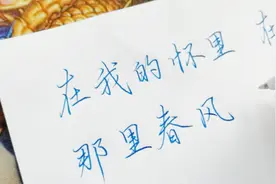 在我的怀里
那里春风
在